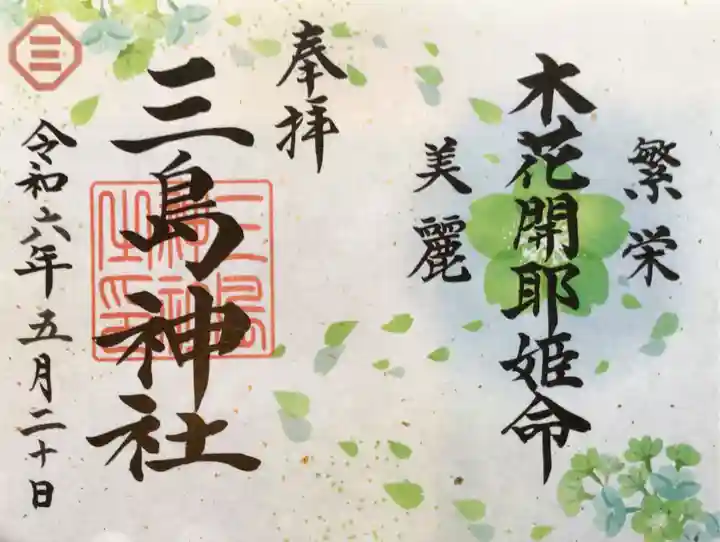 繁栄
木花開耶姫命
美麗
奉拝
三島神社
三島神社之印
令和六年五月二十日
三